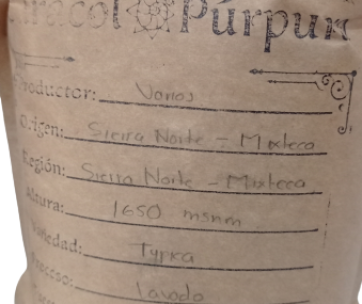 Caracol Púrpura
Productor: Varios
Origen: Sierra Norte - Mixteca
Región: Sierra Norte - Mixteca
Altura: 1650 msnm
Variedad: Typica
Proceso: lavado